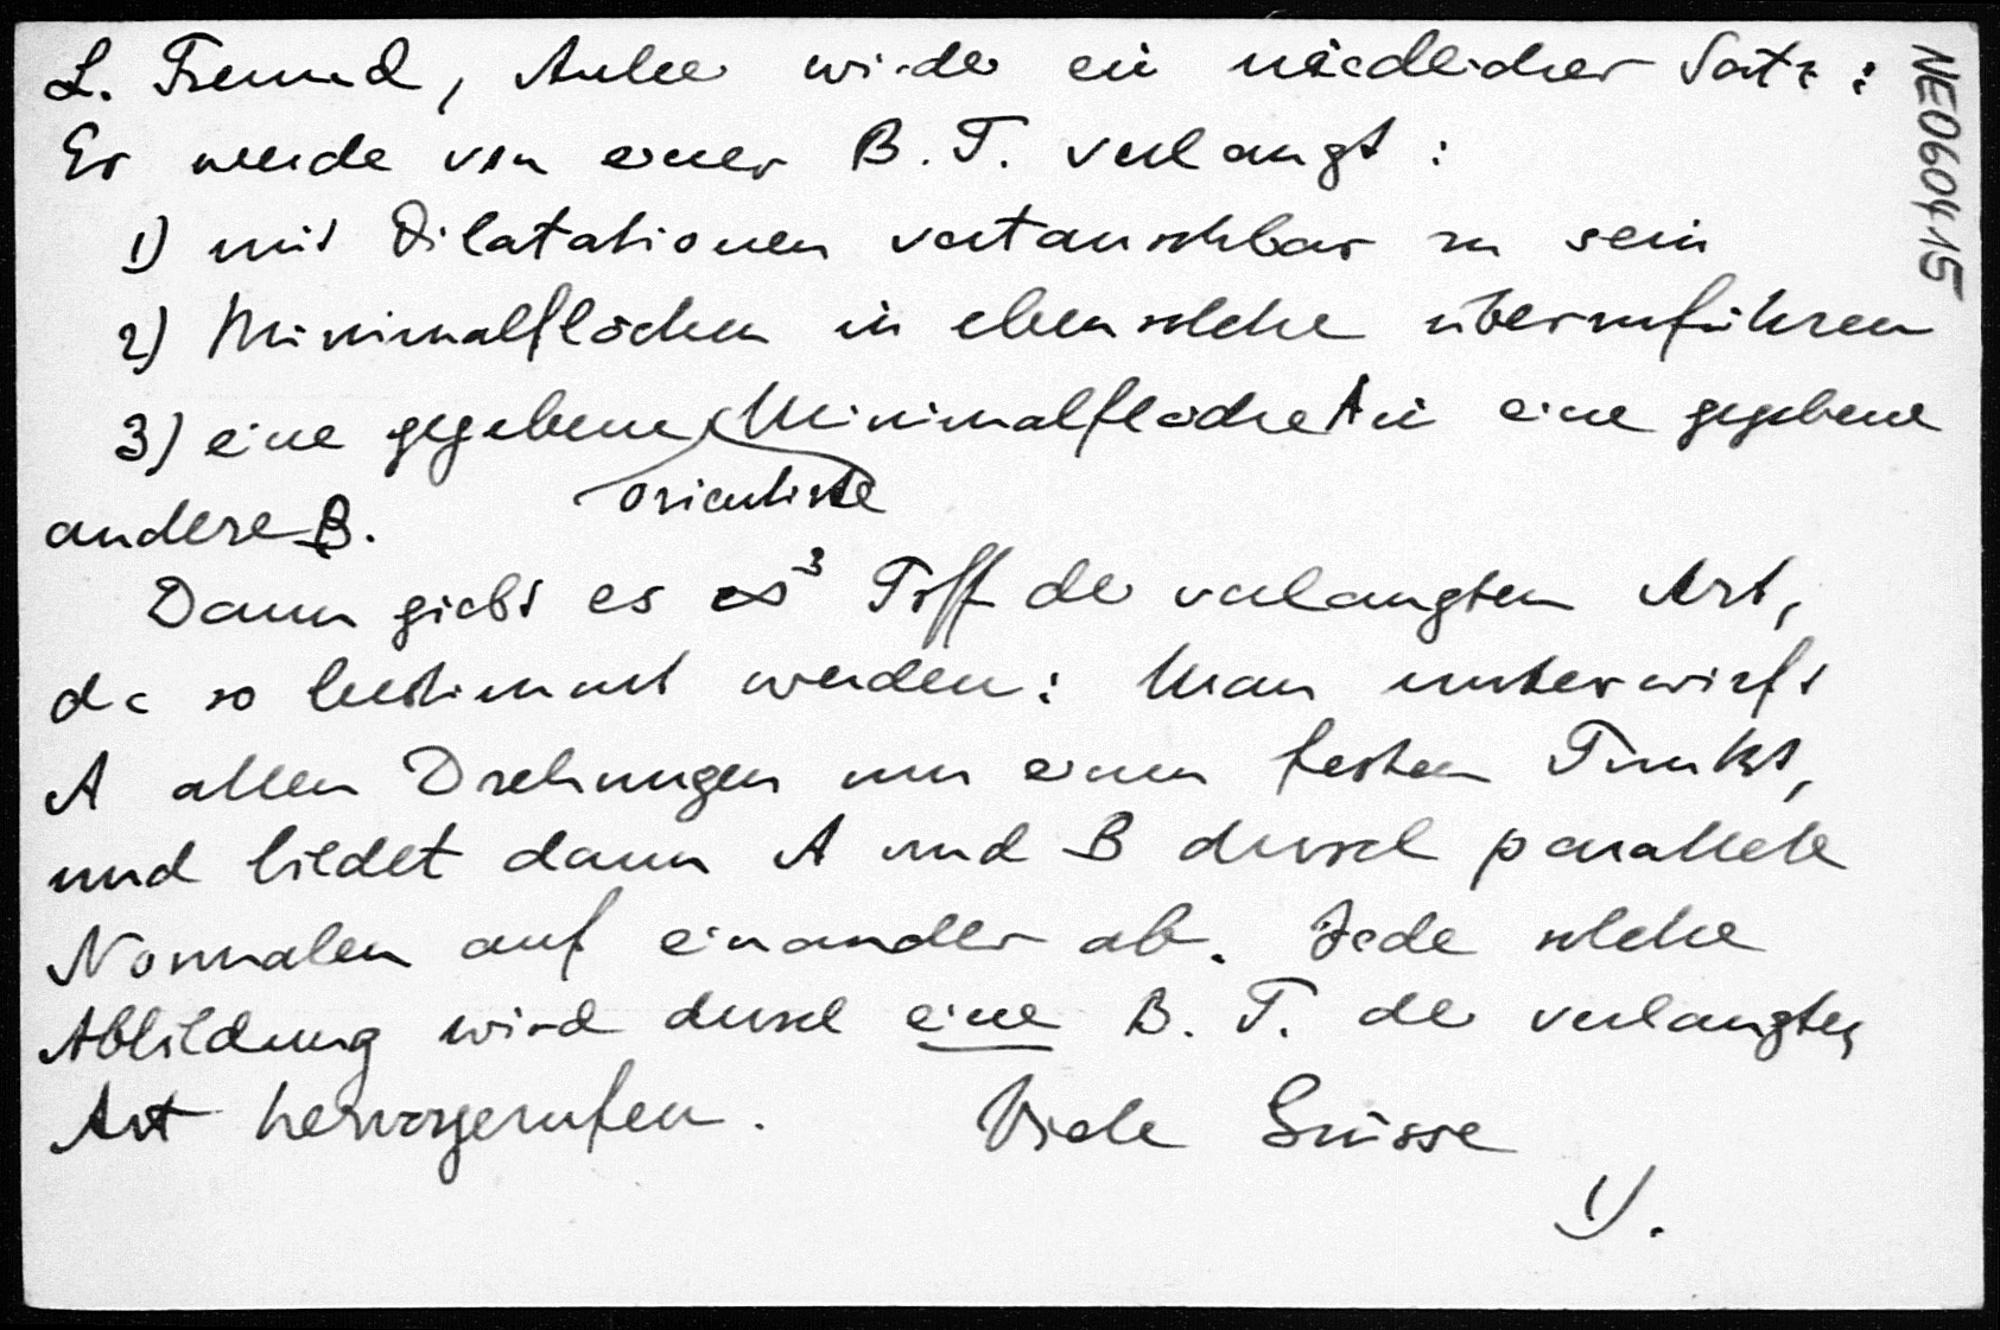 L. Freund, Anbei wieder ein niedlicher Satz:
Es werde von einer B.T. verlangt:
1) mit Dilatationen vertauschbar zu sein
2) Minimalflächen in ebensolche überzuführen
3) eine gegebene orientirte Minimalfläche A in eine gegebene
andere B.
Dann giebt es ∞³ Tff der verlangten Art,
die so bestimmt werden: Man unterwirft
A allen Drehungen um einen festen Punkt,
und bildet dann A und B durch parallele
Normalen auf einander ab. Jede solche
Abbildung wird durch eine B.T. der verlangten
Art hervorgerufen. Viele Grüsse
NE060415